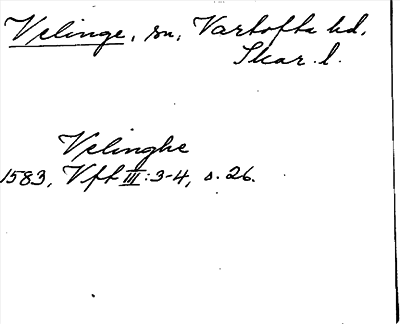 Velinge, sn, Vartofta hd,
Skar. l.
Velinghe
1583, Vfft III:3-4, s. 26.